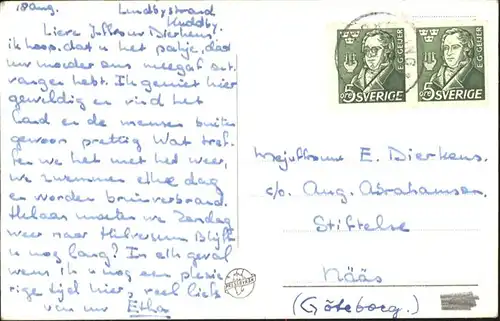 18 Aug. Lundbystrand
Kuddby.
Liere Juffrouw Dierkens,
ik hoop, dat u het pakje, dat
uw moeder ons meegaf ont-
vangen hebt. Ik geniet hier
geweldig en vind het
land en de mensen buiten
gewoon prettig. Wat tref-
fen we het met het weer,
we zwemmen elke dag
en worden bruinverbrand.
Helaas moeten we Zondag
weer naar Hilversum. Blijft
u nog lang? In elk geval
wens ik u nog een plezie-
rige tijd hier, veel liefs
van uw Etha
5 öre SVERIGE
E·G·GEIJER
5 öre SVERIGE
E·G·GEIJER
Mejuffrouw E. Dierkens.
c/o Aug. Abrahamson
Stiftelse
Nääs
(Göteborg.)